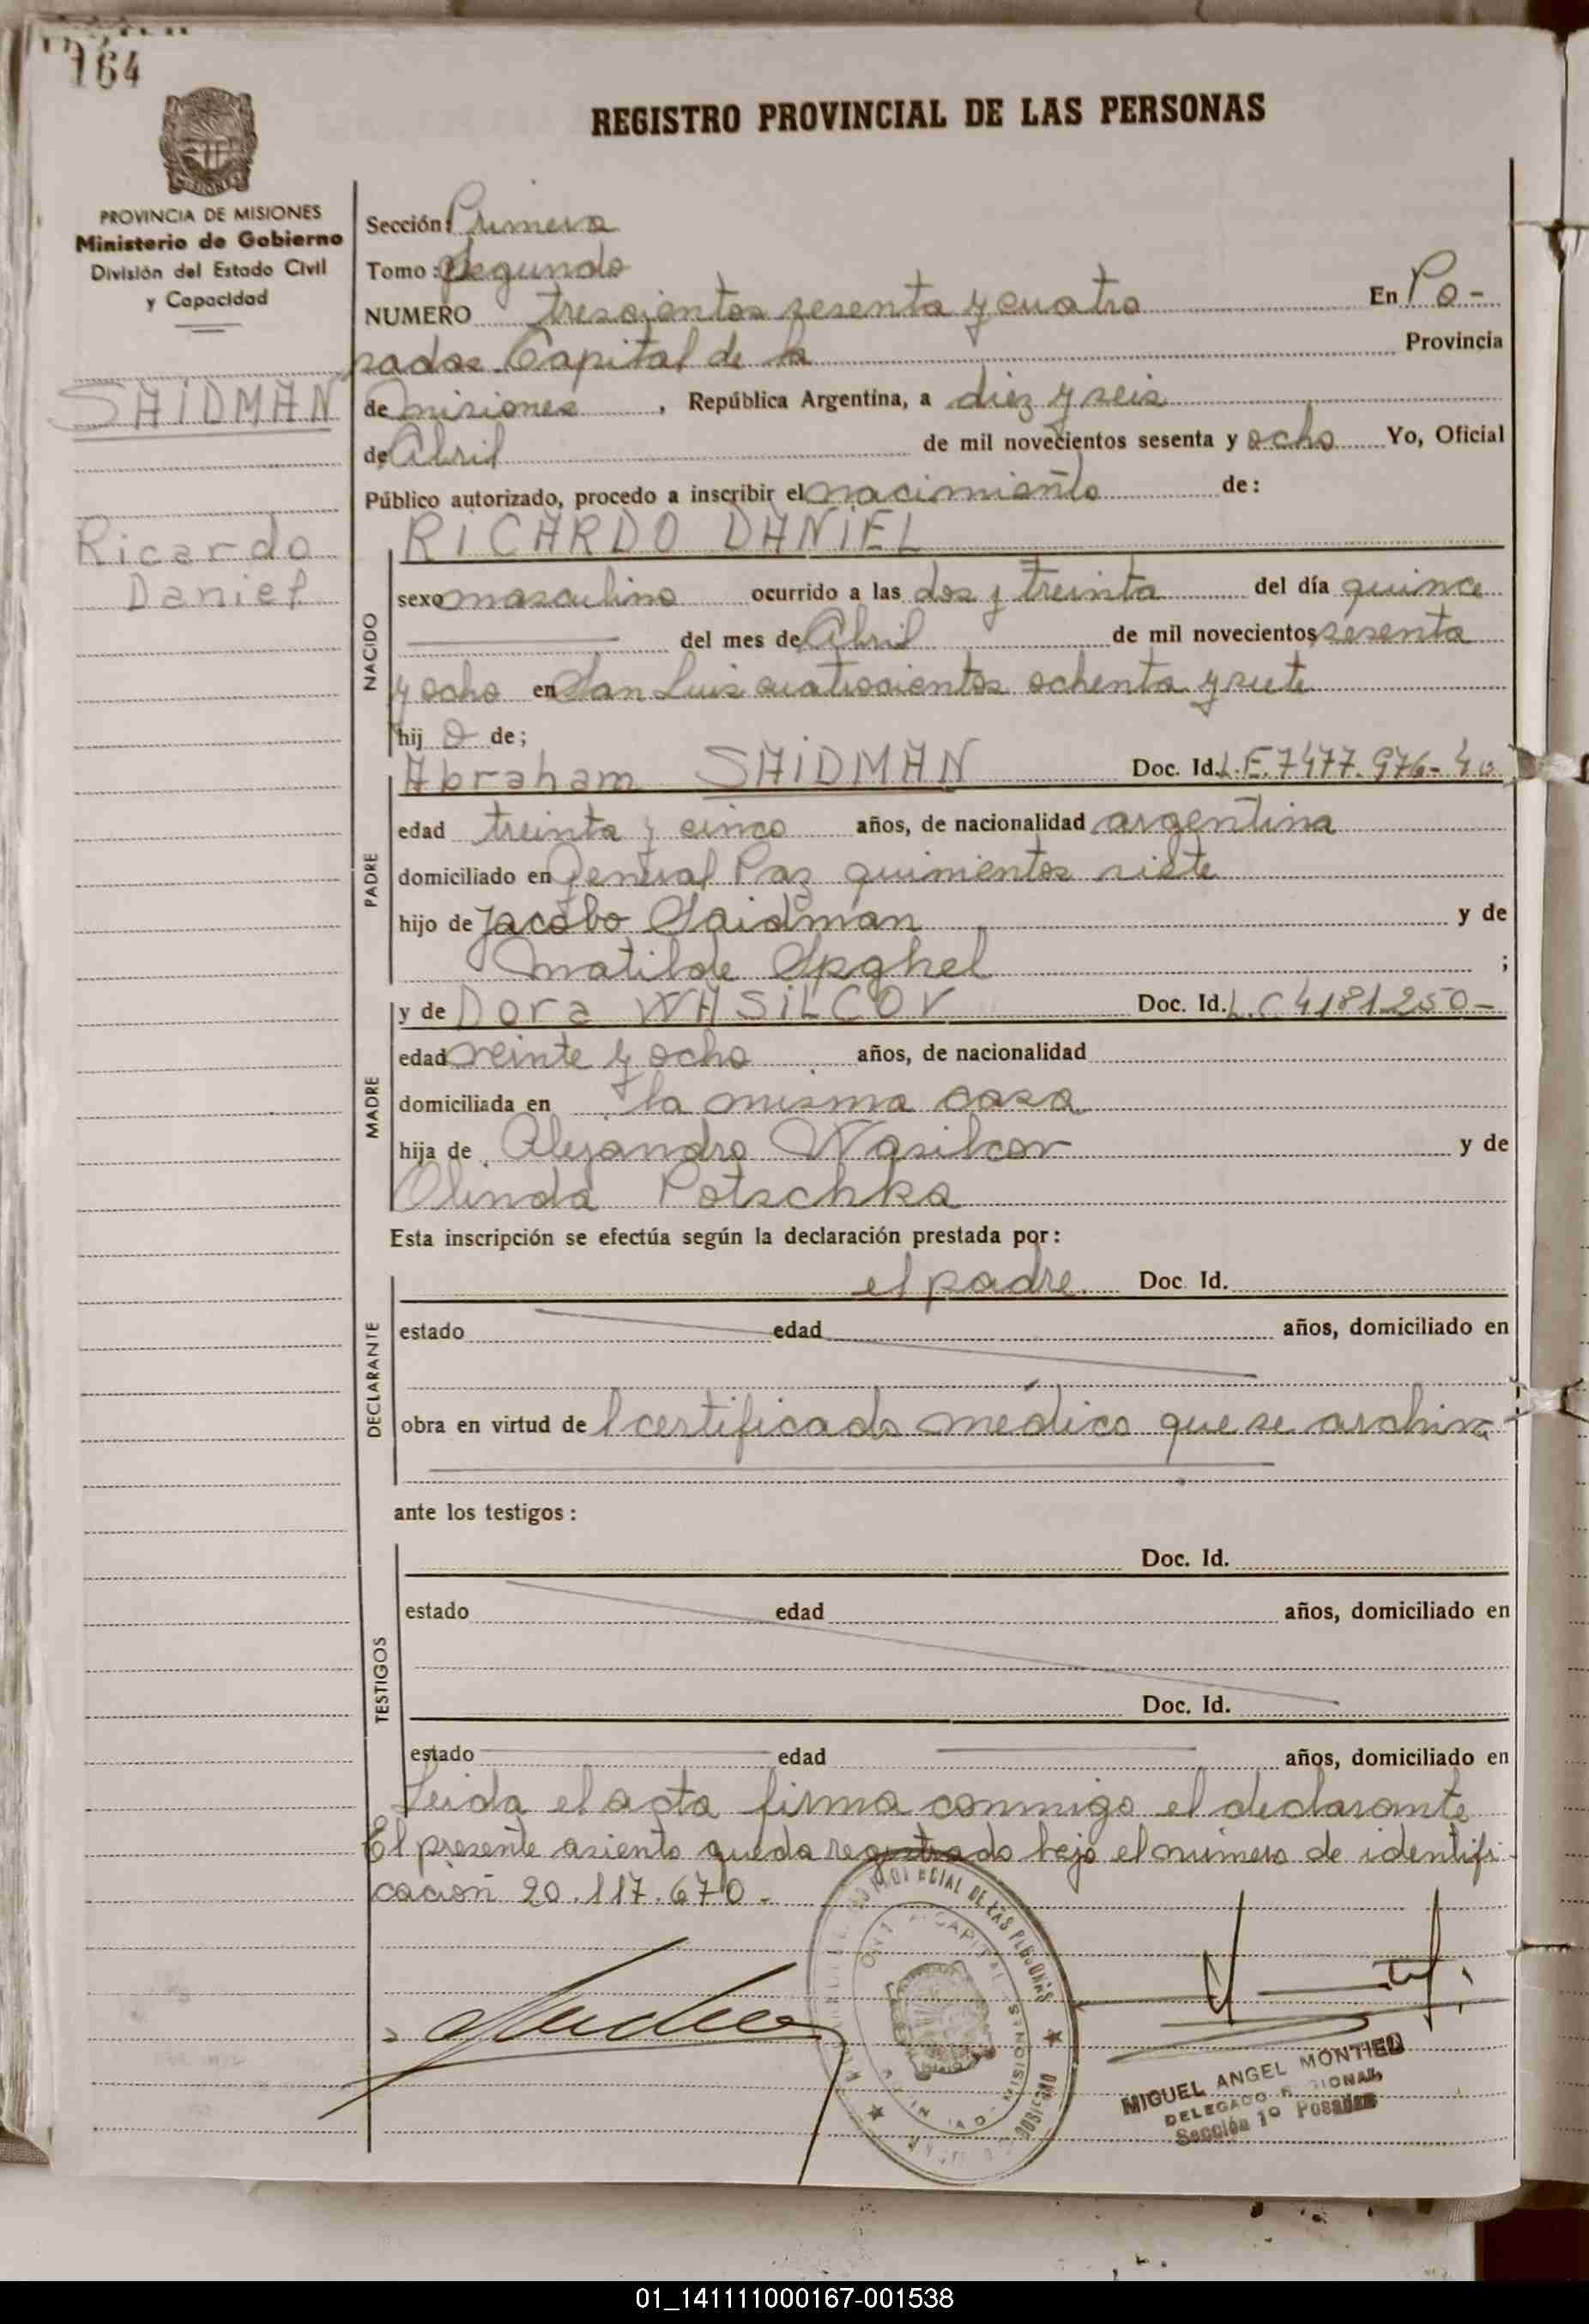 164
REGISTRO PROVINCIAL DE LAS PERSONAS
PROVINCIA DE MISIONES
Ministerio de Gobierno
División del Estado Civil
y Capacidad
SAIDMAN
Ricardo
Daniel
Sección: Primera
Tomo: Segundo
NUMERO trescientos sesenta y cuatro En Po-
sadas Capital de la Provincia
de Misiones, República Argentina, a diez y seis
de Abril de mil novecientos sesenta y ocho Yo, Oficial
Público autorizado, procedo a inscribir el nacimiento de:
RICARDO DANIEL
NACIDO
sexo masculino ocurrido a las dos y treinta del día quince
del mes de Abril de mil novecientos sesenta
y ocho en San Luis cuatrocientos ochenta y siete
hijo de;
Abraham SAIDMAN Doc. Id. L.E. 7477.976-
PADRE
edad treinta y cinco años, de nacionalidad argentina
domiciliado en General Paz quinientos siete
hijo de Jacobo Saidman y de
Matilde Spghel ;
y de Dora WASILCOV Doc. Id. L.C 4181.250-
MADRE
edad veinte y ocho años, de nacionalidad
domiciliada en la misma casa
hija de Alejandro Wasilcov y de
Olinda Potschka
Esta inscripción se efectúa según la declaración prestada por:
el padre. Doc. Id.
DECLARANTE
estado edad años, domiciliado en
obra en virtud de l certificado médico que se archiva
ante los testigos:
Doc. Id.
TESTIGOS
estado edad años, domiciliado en
Doc. Id.
estado edad años, domiciliado en
Leida el acta firma conmigo el declarante
El presente asiento queda registrado bajo el número de identifi-
cación 20.117.670.-
MIGUEL ANGEL MONTIEL
DELEGADO REGIONAL
Sección 1º Posadas
01_141111000167-001538